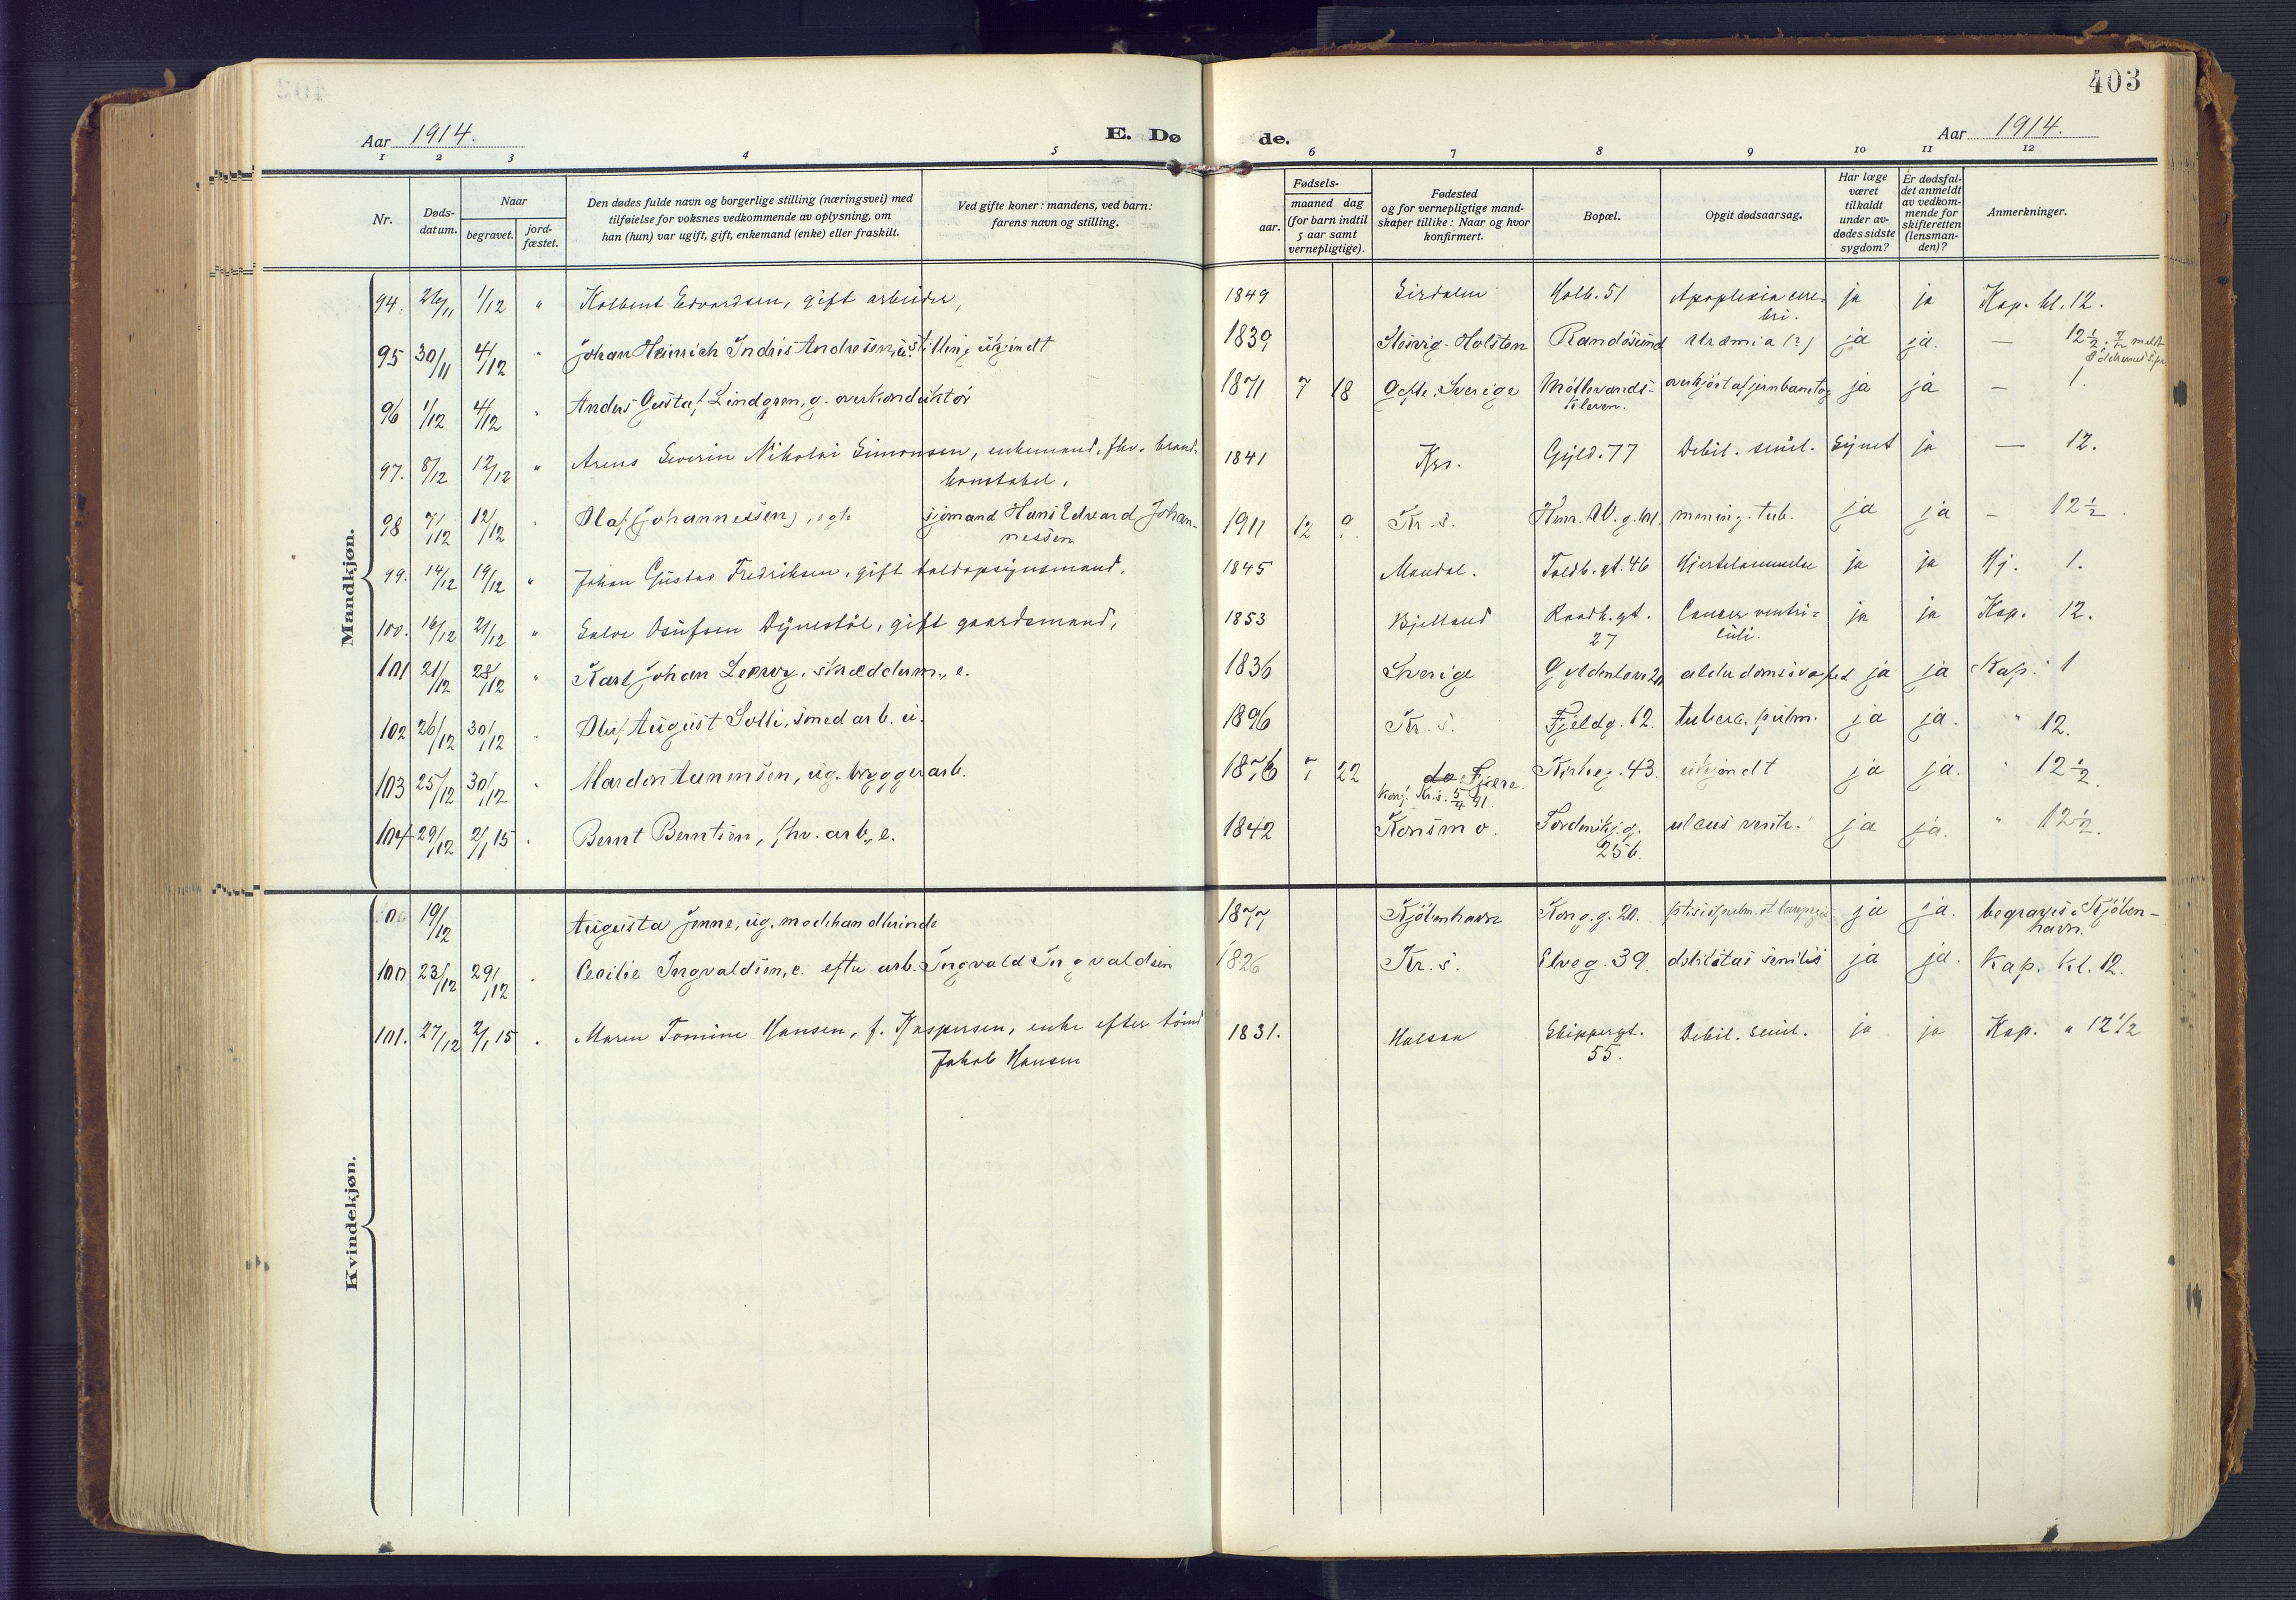 403
Aar 1914. E. Dø de. Aar 1914.
1 2 3 4 5 6 7 8 9 10 11 12
Nr.
Døds-
datum.
Naar
begravet.
jord-
fæstet.
Den dødes fulde navn og borgerlige stilling (næringsvei) med
tilføielse for voksnes vedkommende av oplysning, om
han (hun) var ugift, gift, enkemand (enke) eller fraskilt.
Ved gifte koner: mandens, ved barn:
farens navn og stilling.
Fødsels-
aar.
maaned dag
(for barn indtil
5 aar samt
vernepligtige).
Fødested
og for vernepligtige mand-
skaper tillike: Naar og hvor
konfirmert.
Bopæl.
Opgit dødsaarsag.
Har læge
været
tilkaldt
under av-
dødes sidste
sygdom?
Er dødsfal-
det anmeldt
av vedkom-
mende for
skifteretten
(lensman-
den)?
Anmerkninger.
Mandkjøn.
94. 26/11 1/12 " Kolbent Edvardsen, gift arbeider, 1849 Sirdalen Holb. 51 Apoplexia cere-
bri. ja ja Kap. kl. 12.
95 30/11 4/12 " Johan Heinrich Indris Andresen, stilling ukjendt 1839 Slesvig-Holsten Randøsund Uræmia (?) ja ja. — 12 1/2.
96 1/12 4/12 " Anders Gustaf Lindgren, g. overkonduktør 1871 7 18 Sverige Møllevands-
kleven. overkjørt af jernbanetog ja ja — 1.
97. 8/12 12/12 " Arens Severin Nikolai Simonsen, enkemand, fhv. brand-
konstabel, 1841 Krs. Gyld. 77 Debil. senil. Synet ja — 12.
98 7/12 12/12 " Olaf (Johannessen), egte sjømand Hans Edvard Johan-
nessen 1911 12 9. Kr. s. mening. tub. ja ja — 12 1/2
99. 14/12 19/12 " Johan Gustav Fredriksen, gift toldopsynsmand, 1845 Mandal. Toldb. gt. 46 Hjertelammelse ja ja Hj. 1.
100. 16/12 21/12 " Salve Osufsen Dynestøl, gift gaardsmand, 1853 Bjelland Raadh. gt.
27 Cancer ventri-
culi. ja ja Kap. 12.
101 21/12 28/12 " Karl Johan Leproy, skrædderm., e. 1836 Sverige Gyldenløve 20 alderdomssvakhet ja ja Kap. 1
102 26/12 30/12 " Oluf August Solli, smedarb. u. 1896 Kr. s. Fjeldg. 12. tuberc. pulm. ja ja. " 12.
103 25/12 30/12 " Mardon Aanensen, ug. bryggerarb. 1876 7 22 do. Fjære.
Konf. Kr.s. 5/4 91. Kirkeg. 43. ukjendt ja ja. " 12 1/2.
104 29/12 2/1 15 " Bernt Berntsen, fhv. arb., e. 1842 Konsmo. Tordenskj. g.
25 b. ulcus ventr. ja ja. " 12 1/2.
Kvindekjøn.
19/12 Augusta Jenne, ug. modehandlerinde 1877 Kjøbenhavn Kong. g. 20. ja ja. begraves i Kjøben-
havn.
100 23/12 29/12 . Cecilie Ingvaldsen, e. efter arb. Ingvald Ingvaldsen 1826 Kr. s. Elveg. 39. debilitas senilis ja ja. Kap. Kl. 12.
101. 27/12 2/1 15 . Maren Tomine Hansen, f. Kaspersen, enke efter tømd
Jakob Hansen 1831. Halsaa Skippergt.
55. Debil. senil. ja ja Kap. " 12 1/2